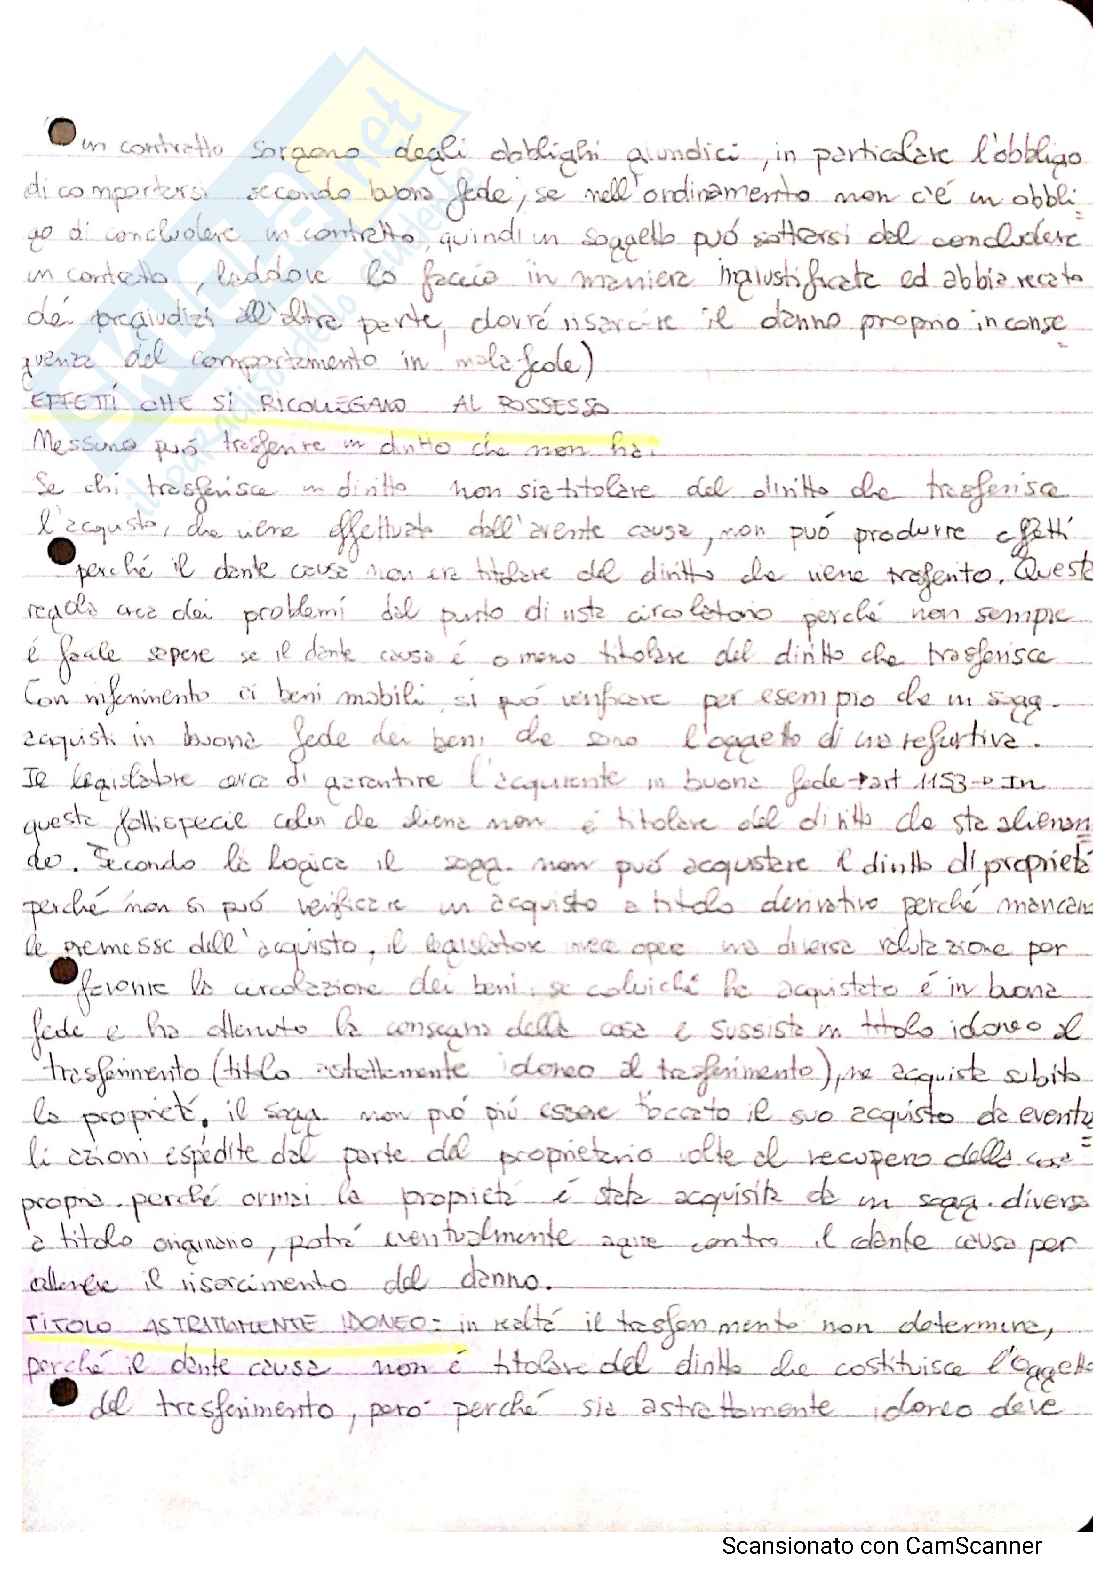 un contratto sorgono degli obblighi giuridici, in particolare l'obbligo
di comportarsi secondo buona fede; se nell'ordinamento non c'é un obbli=
go di concludere un contratto, quindi un soggetto puó sottrarsi dal concludere
un contratto, laddove lo faccia in maniera ingiustificata ed abbia recato
dei pregiudizi all'altra parte, dovrá risarcire il danno proprio in conse=
guenza del comportamento in mala fede)
EFFETTI CHE SI RICOLLEGANO AL POSSESSO
Nessuno puó trasferire un diritto che non ha.
Se chi trasferisce un diritto non sia titolare del diritto che trasferisce
l'acquisto, che viene effettuato dall'avente causa, non puó produrre effetti
perché il dante causa non era titolare del diritto che viene trasferito. Questa
regola crea dei problemi dal punto di vista circolatorio perché non sempre
é facile sapere se il dante causa é o meno titolare del diritto che trasferisce
Con riferimento ai beni mobili, si puó verificare per esempio che un sogg.
acquisti in buona fede dei beni che sono l'oggetto di una refurtiva.
Il legislatore cerca di garantire l'acquirente in buona fede → art 1153 → In
questa fattispecie colui che aliena non é titolare del diritto che sta alienan=
do. Secondo la logica il sogg. non puó acquistare il diritto di proprietá
perché non si puó verificare un acquisto a titolo derivativo perché mancano
le premesse dell'acquisto, il legislatore invece opera una diversa valutazione per
favorire la circolazione dei beni: se colui ché ha acquistato é in buona
fede e ha ottenuto la consegna della cosa e sussista un titolo idoneo al
trasferimento (titolo astrattamente idoneo al trasferimento), ne acquista subito
la proprietá, il sogg. non puó piú essere toccato il suo acquisto da eventua=
li azioni espedite dal parte del proprietario volte al recupero della cosa
propria. perché ormai la proprietá é stata acquisita da un sogg. diverso
a titolo originario, potrá eventualmente agire contro il dante causa per
ottenere il risarcimento del danno.
TITOLO ASTRATTAMENTE IDONEO: in realtá il trasferimento non determina,
perché il dante causa non é titolare del diritto che costituisce l'oggetto
del trasferimento, peró perché sia astrattamente idoneo deve
skuola.net
il paradiso dello studente
Scansionato con CamScanner